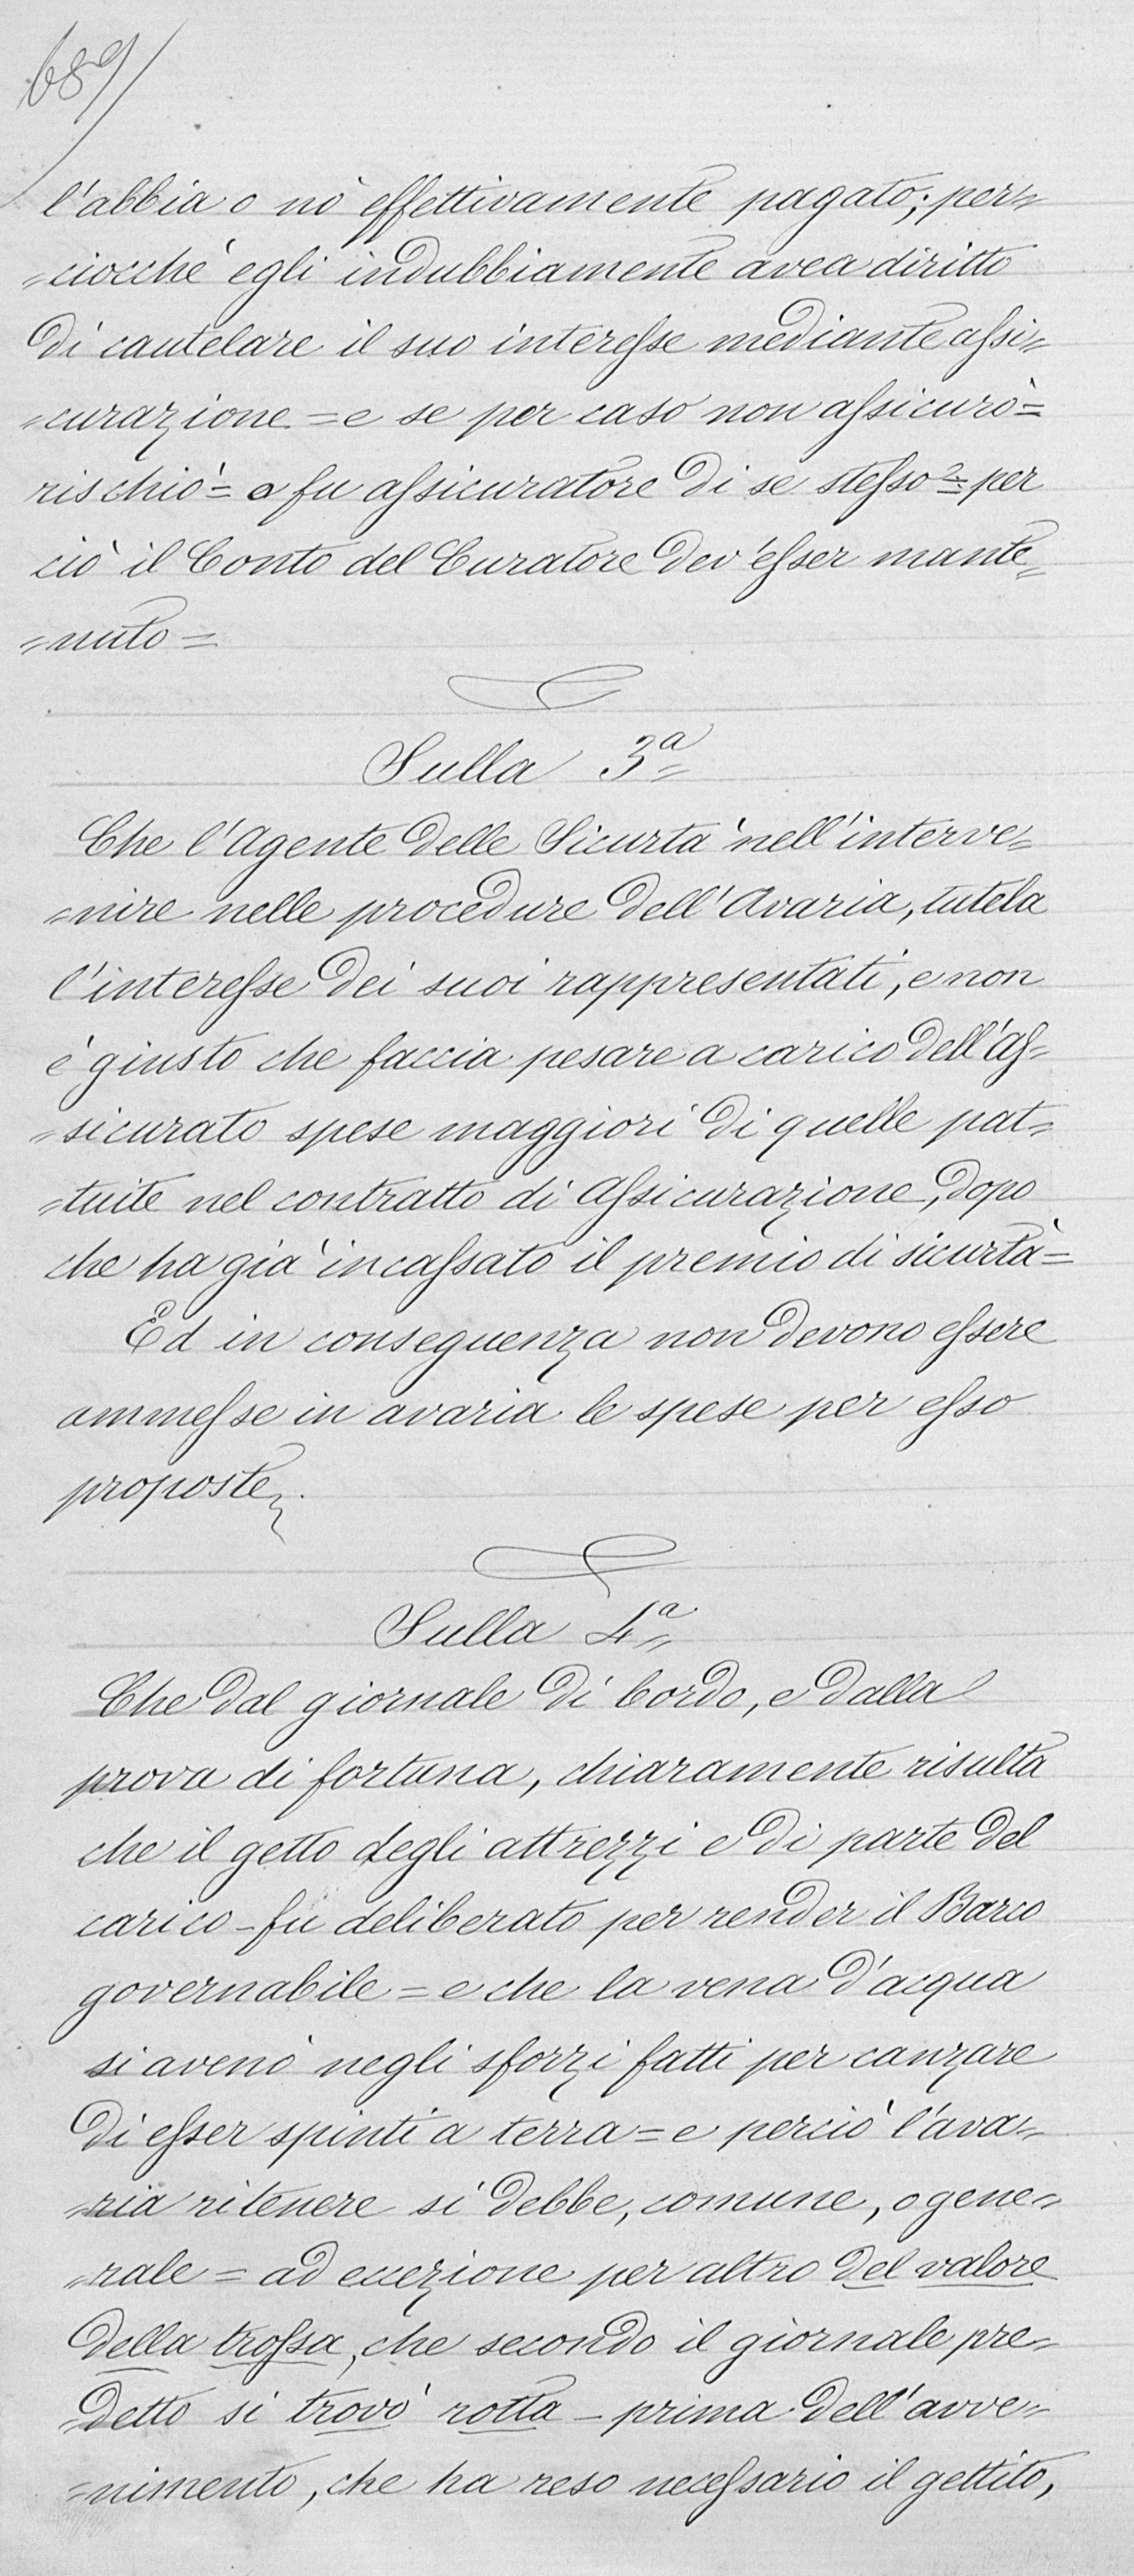 689/
l'abbia o nò effettivamente pagato; per=
=ciocchè egli indubbiamente avea diritto
di cautelare il suo interesse mediante assi=
=curazione = e se per caso non assicurò =
rischiò = o fu assicuratore di se stesso = per
ciò il Conto del Curatore dev'esser mante=
=nuto =
Sulla 3a
Che l'Agente delle Sicurtà nell'interve=
=nire nelle procedure dell'Avaria, tutela
l'interesse dei suoi rappresentati, e non
è giusto che faccia pesare a carico dell'As=
=sicurato spese maggiori di quelle pat=
=tuite nel contratto di Assicurazione, dopo
che ha già incassato il premio di sicurtà =
Ed in conseguenza non devono essere
ammesse in avaria le spese per esso
proposte.
Sulla 4a
Che dal giornale di bordo, e dalla
prova di fortuna, chiaramente risulta
che il getto degli attrezzi e di parte del
carico - fu deliberato per render il Barco
governabile = e che la vena d'acqua
si avenò negli sforzi fatti per canzare
di esser spinti a terra = e perciò l'ava=
=ria ritenere si debbe, comune, o gene=
=rale = ad eccezione per altro del valore
della trossa, che secondo il giornale pre=
=detto si trovò rotta - prima dell'avve=
=nimento, che ha reso necessario il gettito,